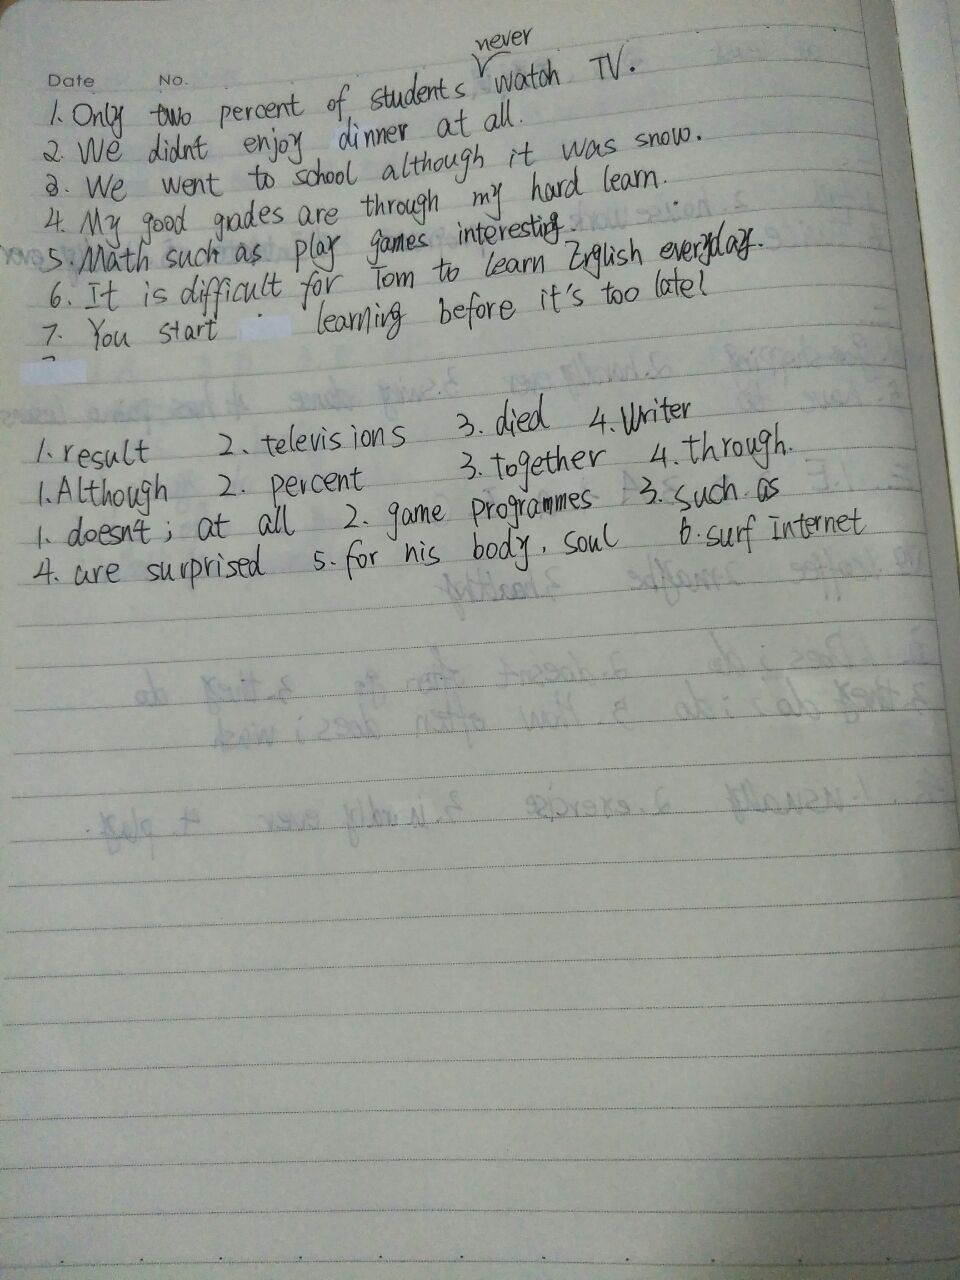 Date No.
never
1. Only two percent of students watch TV.
2. We didnt enjoy dinner at all.
3. We went to school although it was snow.
4. My good grades are through my hard learn.
5. Math such as play games interesting.
6. It is difficult for Tom to learn English everyday.
7. You start learning before it's too late!
1. result 2. televisions 3. died 4. Writer
1. Although 2. percent 3. together 4. through.
1. doesnt; at all 2. game programmes 3. such as
4. are surprised 5. for his body, soul 6. surf Internet